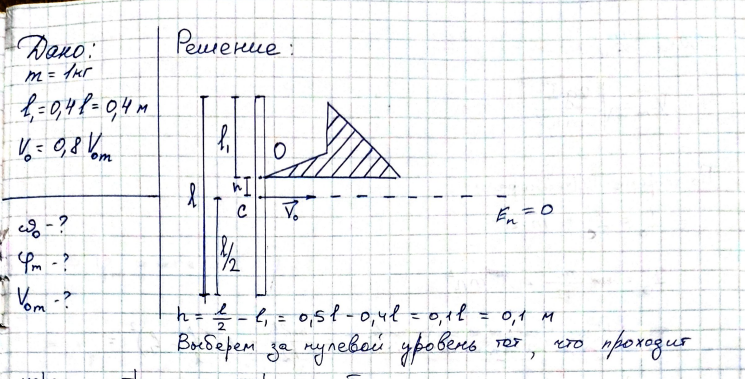 Дано:
m = 1кг
l₁ = 0,4l = 0,4 м
V₀ = 0,8 V₀m
ω₀ - ?
φm - ?
V₀m - ?
Решение:
l
l₁
O
h
C
V₀
l/2
Eп = 0
h = l/2 - l₁ = 0,5l - 0,4l = 0,1l = 0,1 м
Выберем за нулевой уровень тот, что проходит